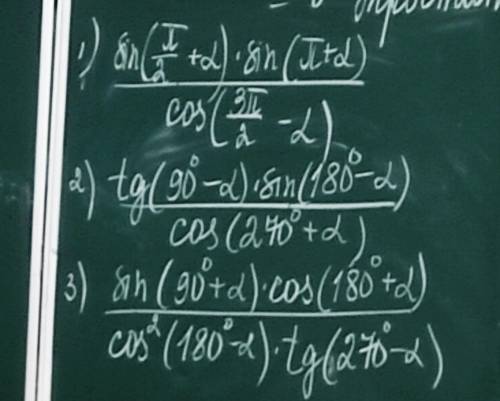 1) sin(π/2 + α) · sin(π + α) / cos(3π/2 − α)
2) tg(90° − α) · sin(180° − α) / cos(270° + α)
3) sin(90° + α) · cos(180° + α) / cos²(180° − α) · tg(270° − α)